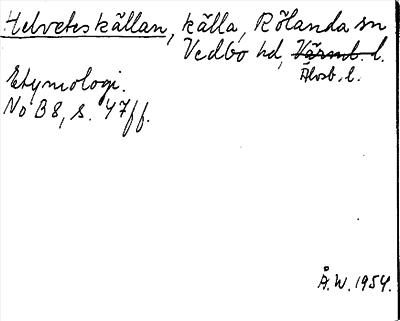 Helveteskällan, källa, Rölanda sn
Vedbo hd, Värml. l.
Älvsb. l.
Etymologi.
NoB 8, s. 47 ff.
Å.W. 1954.